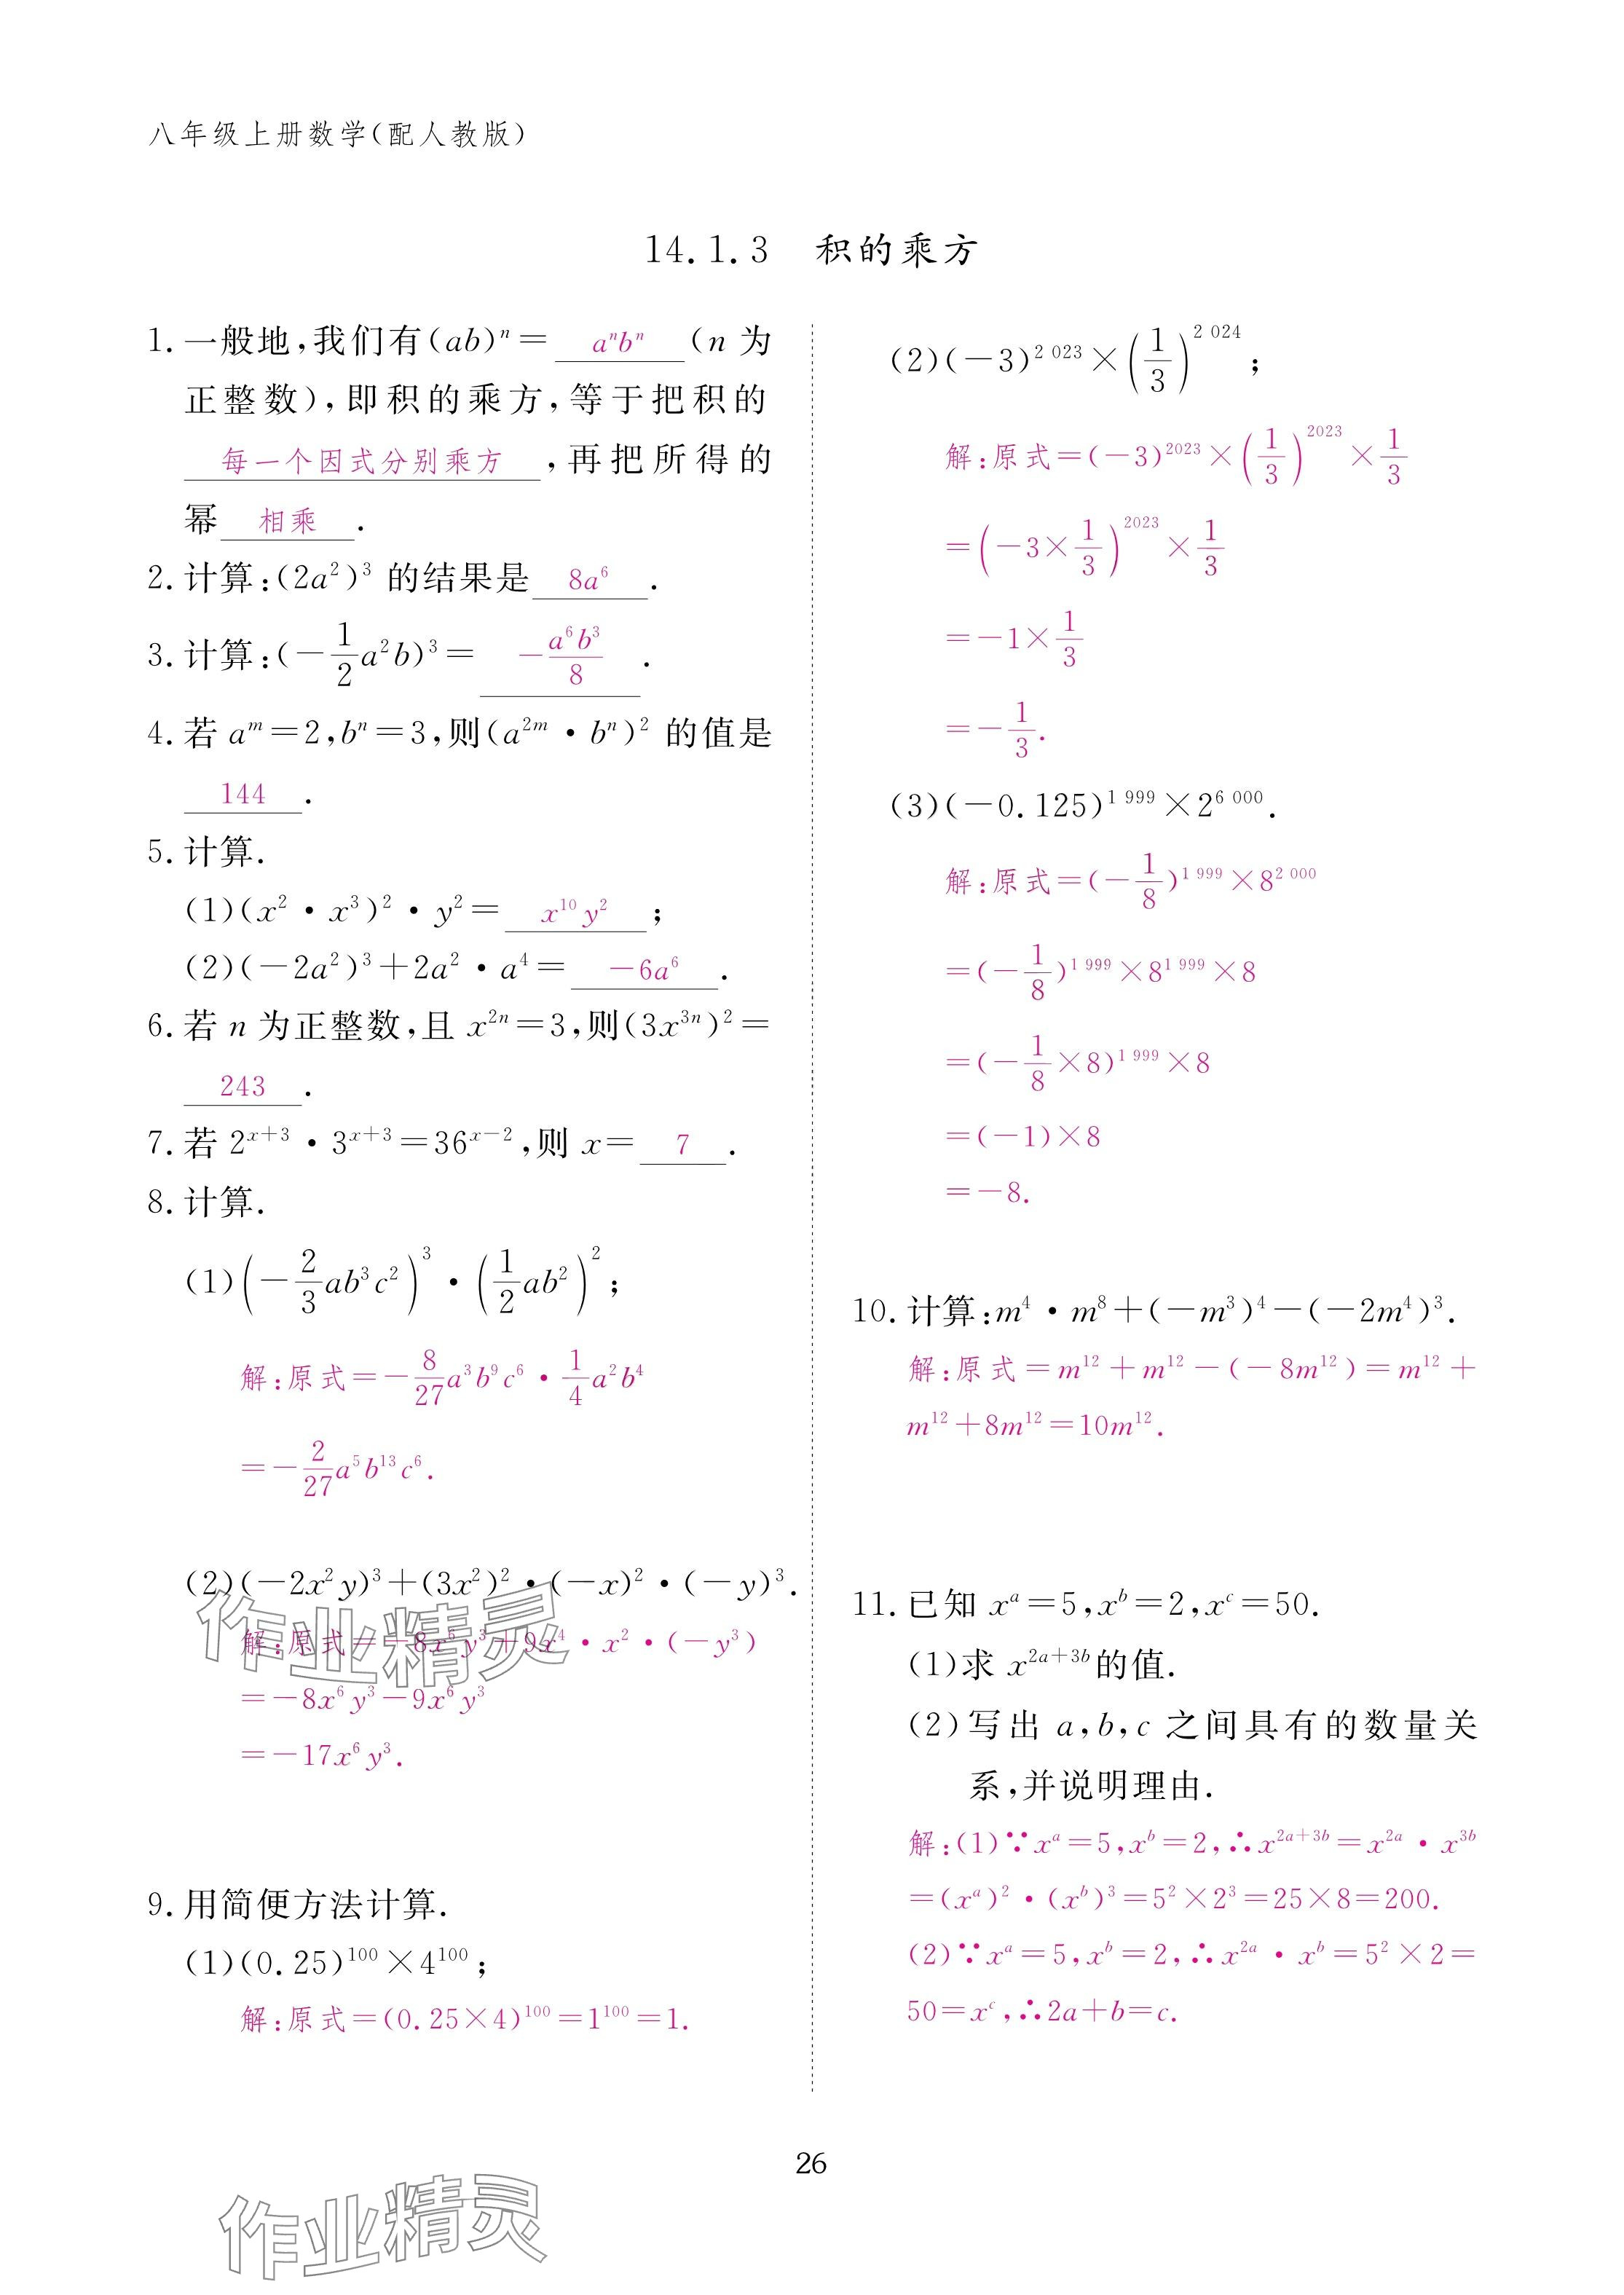 八年级上册数学(配人教版)
14.1.3 积的乘方
1.一般地,我们有(ab)ⁿ=aⁿbⁿ(n 为
正整数),即积的乘方,等于把积的
每一个因式分别乘方,再把所得的
幂 相乘.
2.计算:(2a²)³ 的结果是 8a⁶.
3.计算:(-1/2 a²b)³= -a⁶b³/8.
4.若 a^m=2,bⁿ=3,则(a^{2m}·bⁿ)² 的值是
144.
5.计算.
(1)(x²·x³)²·y²= x¹⁰y²;
(2)(-2a²)³+2a²·a⁴= -6a⁶.
6.若 n 为正整数,且 x^{2n}=3,则(3x^{3n})²=
243.
7.若 2^{x+3}·3^{x+3}=36^{x-2},则 x= 7.
8.计算.
(1)(-2/3 ab³c²)³·(1/2 ab²)²;
解:原式=-8/27 a³b⁹c⁶·1/4 a²b⁴
=-2/27 a⁵b¹³c⁶.
(2)(-2x²y)³+(3x²)²·(-x)²·(-y)³.
解:原式=-8x⁶y³+9x⁴·x²·(-y³)
=-8x⁶y³-9x⁶y³
=-17x⁶y³.
9.用简便方法计算.
(1)(0.25)¹⁰⁰×4¹⁰⁰;
解:原式=(0.25×4)¹⁰⁰=1¹⁰⁰=1.
(2)(-3)^{2 023}×(1/3)^{2 024};
解:原式=(-3)^{2023}×(1/3)^{2023}×1/3
=(-3×1/3)^{2023}×1/3
=-1×1/3
=-1/3.
(3)(-0.125)^{1 999}×2^{6 000}.
解:原式=(-1/8)^{1 999}×8^{2 000}
=(-1/8)^{1 999}×8^{1 999}×8
=(-1/8×8)^{1 999}×8
=(-1)×8
=-8.
10.计算:m⁴·m⁸+(-m³)⁴-(-2m⁴)³.
解:原式=m¹²+m¹²-(-8m¹²)=m¹²+
m¹²+8m¹²=10m¹².
11.已知 x^a=5,x^b=2,x^c=50.
(1)求 x^{2a+3b}的值.
(2)写出 a,b,c 之间具有的数量关
系,并说明理由.
解:(1)∵x^a=5,x^b=2,∴x^{2a+3b}=x^{2a}·x^{3b}
=(x^a)²·(x^b)³=5²×2³=25×8=200.
(2)∵x^a=5,x^b=2,∴x^{2a}·x^b=5²×2=
50=x^c,∴2a+b=c.
26
作业精灵
作业精灵